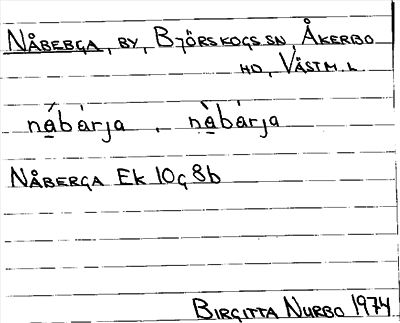 NÅBERGA, BY, BJÖRSKOGS SN, ÅKERBO
HD, VÄSTM. L.
nábàrja , nàbàrja
NÅBERGA EK 10G8b
BIRGITTA NURBO 1974